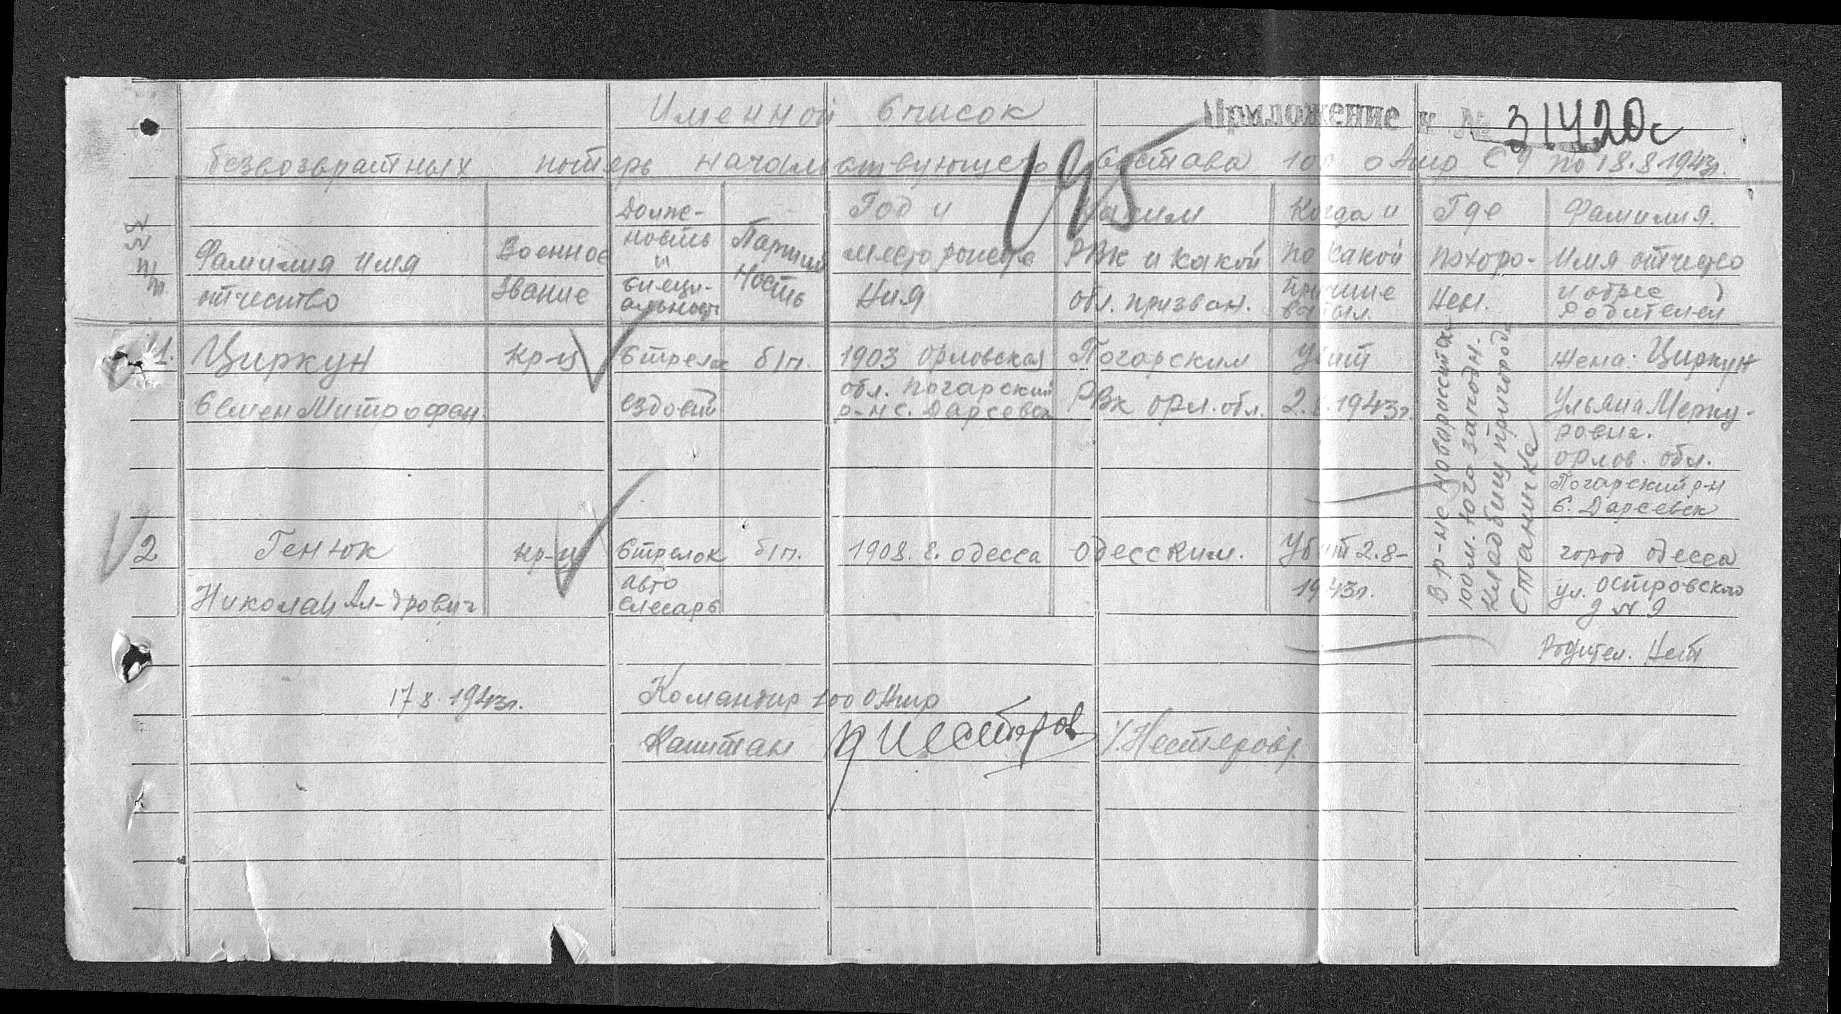 Именной список
Приложение к № 31420с
безвозвратных потерь начальствующего состава 100 оашр с 9 по 18.8.1943г.
195
№№ п/п
Фамилия имя отчество
Военное звание
Долж-
ность
и
специ-
альность
Партий
ность
Год и
место рожде
ния
Каким
РВК и какой
обл. призван.
Когда и
по какой
причине
выбыл
Где
похоро-
нен.
Фамилия.
Имя отчество
и адрес
родителей
1. Циркун кр-ц стрелок б/п. 1903 Орловская Погарским Убит жена: Циркун
Семен Митрофан. ездовой обл. Погарский РВк орл. обл. 2.8.1943г. Ульяна Мерку-
р-н с. Дарсевск
ровна.
орлов. обл.
Погарский р-н
с. Дарсевск
В р-не Новоросстан
100 м. юго западн.
кладбищ пригорода
Станичка
2 Генюк кр-ц стрелок б/п. 1908. г. одесса Одесским. Убит 2.8- город одесса
Николай Ал-дрович авто 1943г. ул. Островского
слесарь д № 9
Родител. Нет
17 8. 1943г. Командир 100 оашр
Капитан Нестеров /Нестеров/.